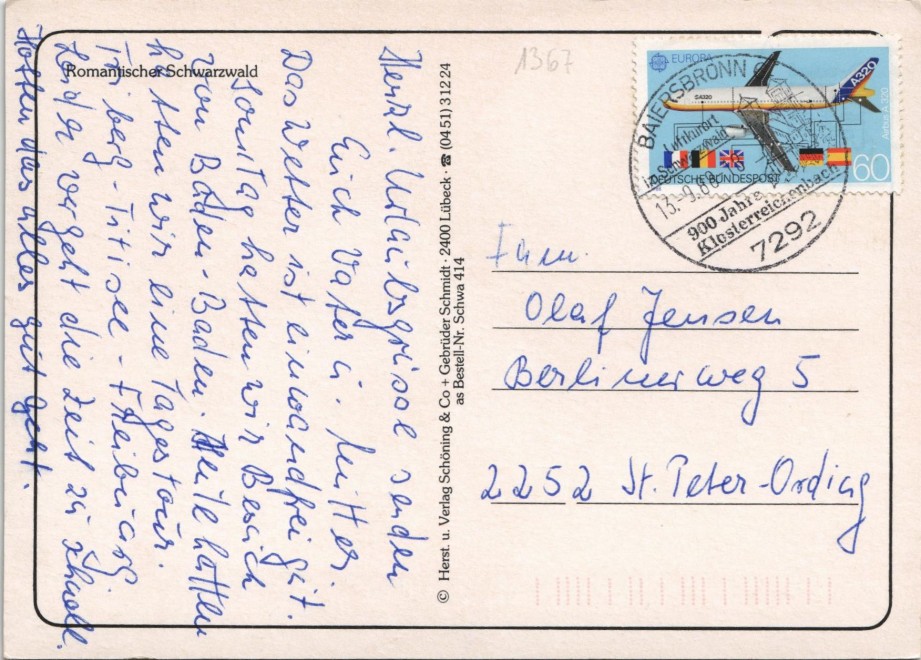 Romantischer Schwarzwald
Herzl. Urlaubsgrüsse senden
Euch Vater u. Mutter.
Das Wetter ist einwandfrei gut.
Sonntag hatten wir Besuch
von Baden-Baden. Heute hatten
hatten wir eine Tagestour.
Triberg-Titisee-Freiburg
Leider vergeht die Zeit zu schnell.
Hoffen das alles gut geht.
© Herst. u. Verlag Schöning & Co + Gebrüder Schmidt · 2400 Lübeck · ☎ (0451) 31224
as Bestell-Nr. Schwa 414
1367
EUROPA
A320
SA320
Airbus A 320
60
DEUTSCHE BUNDESPOST
BAIERSBRONN
Luftkurort
im Schwarzwald
13.-9.88
900 Jahre
Klosterreichenbach
7292
Fam.
Olaf Jensen
Berliner weg 5
2252 St. Peter-Ording